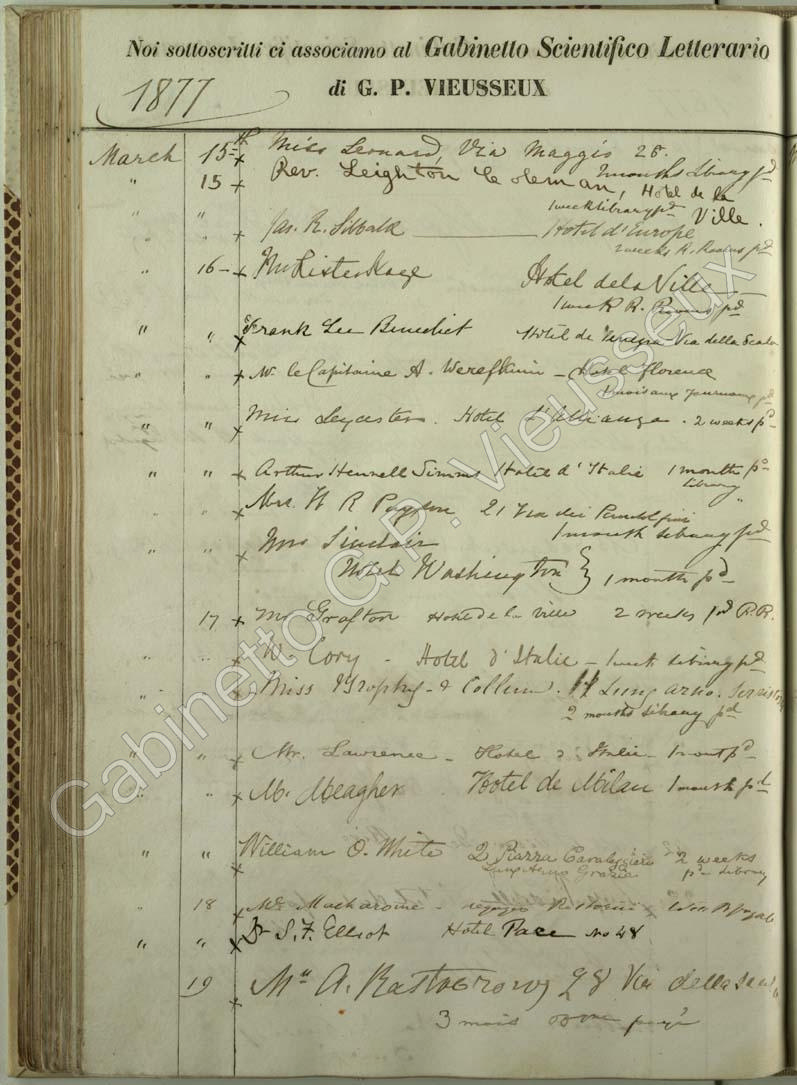 Noi sottoscritti ci associamo al Gabinetto Scientifico Letterario
di G. P. VIEUSSEUX
1877
March 15th x Miss Leonard, Via Maggio 28.
2 months library pd
" 15 x Rev. Leighton Coleman, Hotel de la
1 week library pd Ville.
" " x Jas. R. Hotel d'Europe
2 weeks R. Rooms pd
" 16 - x Hotel de la Ville
1 week R. Rooms pd
" " x Frank Lee Benedict Hotel de Via della Scala
" " x Mr. le Capitaine A. Werefkin - Hotel Florence
1 mois aux journaux pd
" " x Miss Leycester. Hotel d'Allianza. 2 weeks pd
" " x Arthur Hennell Simms Hotel d'Italie 1 month pd
library
" x Mrs. W R 21 Via dei Pandolfini
1 month library pd
" " x Mrs Sinclair
Hotel Washington } 1 month pd
17 x Mr Grafton Hotel de la Ville 2 weeks pd R.R.
" " x W. Cory - Hotel d'Italie - 1 week library pd
" " x Miss Brophy & Collum. Lung'arno.
2 months library pd
" " x Mr. Lawrence - Hotel d'Italie - 1 mont pd
" " x M. Meagher Hotel de Milan 1 month pd
" " x William O. White 2 Piazza Cavalleggieri 2 weeks
Lung'Arno Grazie pd library
" 18 x
" " x Dr S. F. Elliot Hotel Pace No 48
19 x A. 28 Via della
3 mois payé
Gabinetto G.P. Vieusseux